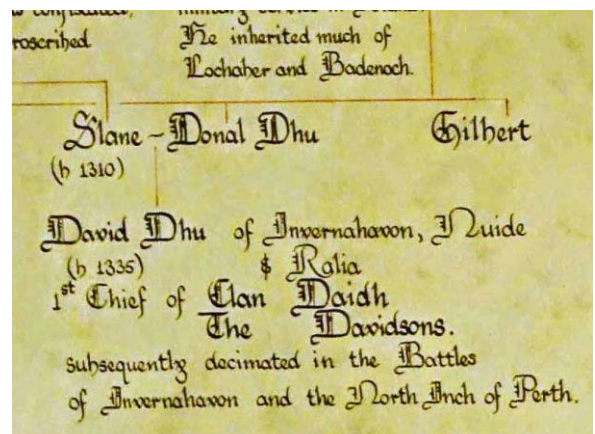 roscribed
He inherited much of
Lochaber and Badenoch.
Slane - Donal Dhu
Gilbert
(b 1310)
David Dhu of Invernahavon, Nuide
(b 1335) & Ralia
1st Chief of Clan Daidh
The Davidsons.
subsequently decimated in the Battles
of Invernahavon and the North Inch of Perth.